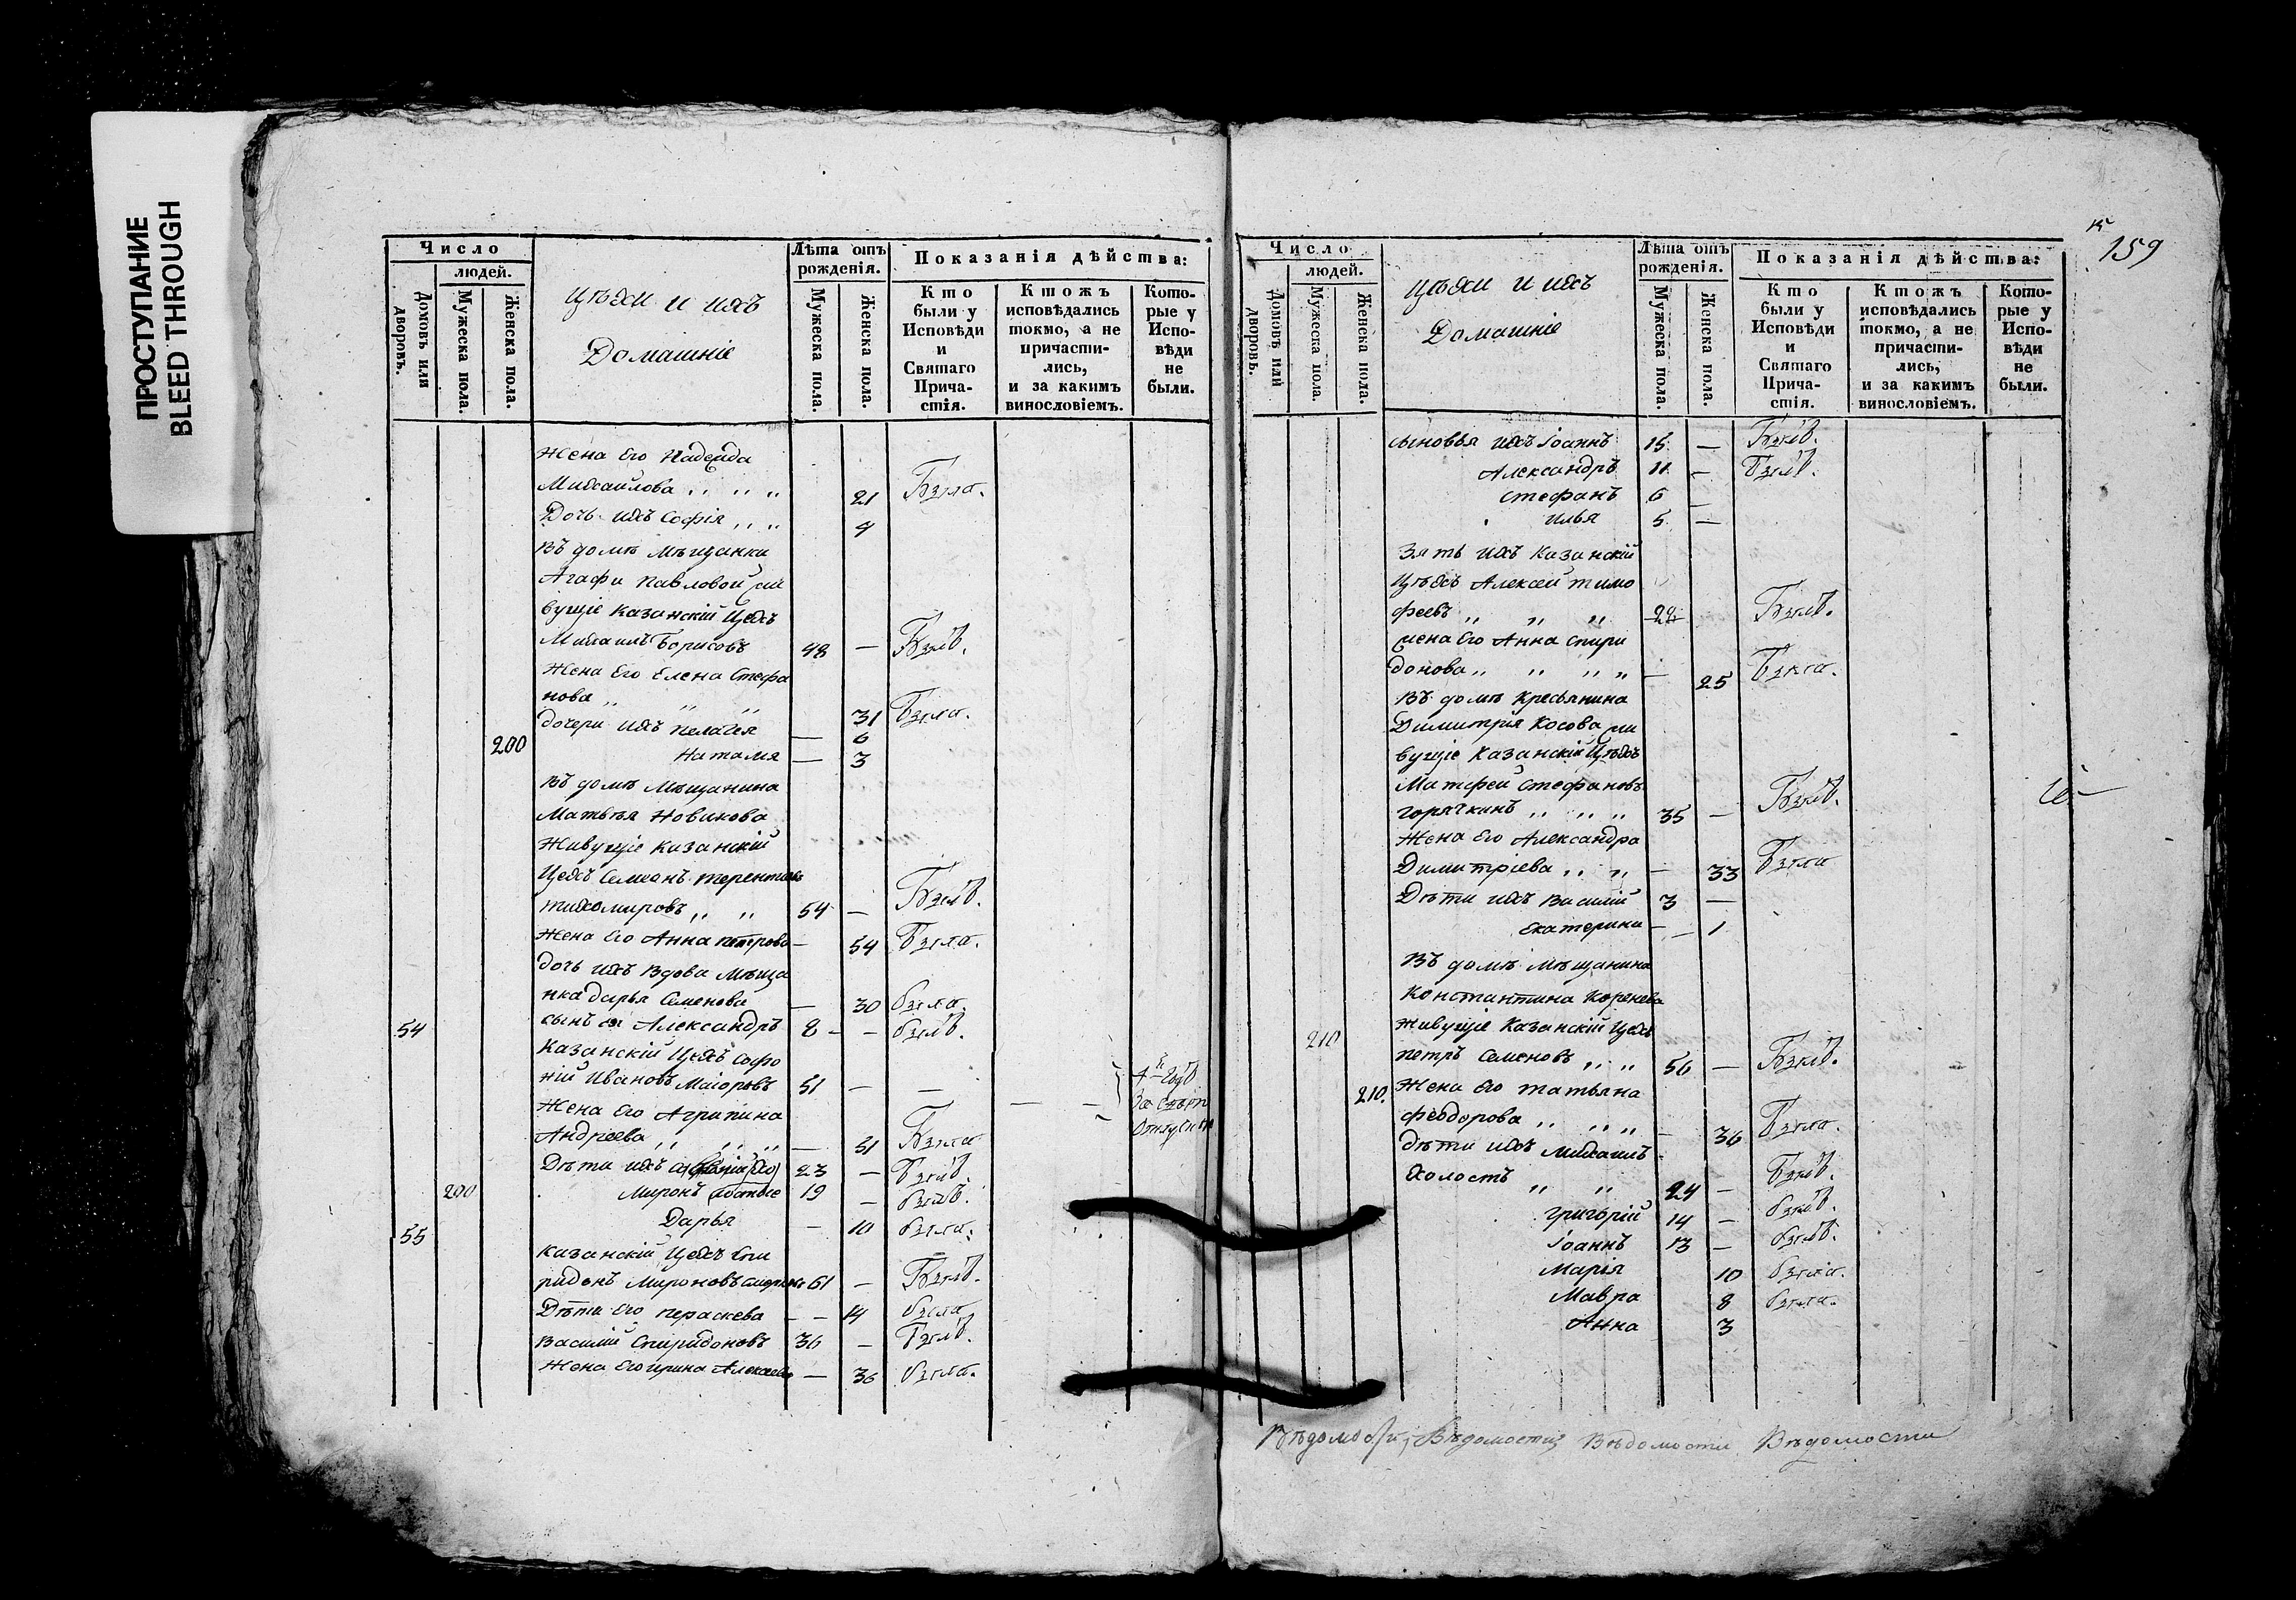 ПРОСТУПАНИЕ
BLEED THROUGH
Число
людей.
Домовъ или дворовъ.
Мужеска пола.
Женска пола.
Цѣхи и ихъ
Домашніе
Лѣта отъ рожденія.
Мужеска пола.
Женска пола.
Показанія дѣйства:
Кто были у Исповѣди и Святаго Прича-стія.
Ктожъ исповѣдались токмо, а не причасти-лись, и за какимъ винословіемъ.
Кото-рые у Испо-вѣди не были.
Жена его Надежда
Михаилова ,, ,, ,, 21 Была.
Дочь ихъ Софія ,, ,, 4
Въ домѣ мѣщанки
Агафи Павловой жи
вущіе Казанскій Цехъ
Михаилъ Борисовъ 48 — Былъ.
Жена его Елена Стефа
нова ,, ,, ,, 31 Была.
дочери ихъ Пелагея — 6
200 Наталя — 3
Въ домѣ мѣщанина
Матвѣя Новикова
Живущіе Казанскій
Цехъ Семеанъ Терентиевъ
Тихомировъ ,, ,, 54 — Былъ.
Жена его Анна Петрова — 54 Была.
дочь ихъ вдова мѣща
нка Дарья Семенова — 30 была
54 сынъ ея Александръ 8 — — былъ.
Казанскій Цехъ Софо
ній Ивановъ Маіоровъ 51 — — — —
Жена его Агрипина
Андреева ,, ,, ,, — 51 Была
Дѣти ихъ 23 — Былъ.
200 Миронъ холостые 19 — былъ.
Дарья — 10 была.
55
Казанскій Цехъ Спи
ридонъ Мироновъ 61 — Былъ.
Дѣти его Пераскева — — 14 была
Василій Спиридоновъ 36 — Былъ.
Жена его Ирина Алексеева — 36 была.
159
Число
людей.
Домовъ или дворовъ.
Мужеска пола.
Женска пола.
Цѣхи и ихъ
Домашніе
Лѣта отъ рожденія.
Мужеска пола.
Женска пола.
Показанія дѣйства:
Кто были у Исповѣди и Святаго Прича-стія.
Ктожъ исповѣдались токмо, а не причасти-лись, и за какимъ винословіемъ.
Кото-рые у Испо-вѣди не были.
сыновья ихъ Іоаннъ 15 — Былъ.
Александръ 11 — Былъ.
Стефанъ 6 —
Илья 5 —
Зять ихъ Казанскій
Цѣхъ Алексей Тимо
феевъ ,, ,, ,, 24 Былъ.
жена его Анна Спири
донова ,, ,, ,, ,, — 25 Была.
Въ домѣ кресьянина
Димитрія Косова жи
вущіе Казанскій Цѣхъ
Матфей Стефановъ
Горячкинъ ,, ,, ,, 35 — Былъ.
Жена его Александра
Димитріева ,, ,, — 33 Была
Дѣти ихъ Василій 3 —
Екатерина — — 1
Въ домѣ мѣщанина
Константина Коренева
210 живущіе Казанскій Цехъ
Петръ Семеновъ ,, ,, 56 — Былъ.
210. Жена его Татьяна
Феодорова ,, ,, ,, — 36 Была.
Дѣти ихъ Михаилъ
Холостъ ,, ,, 24 — Былъ.
Григорій 14 — былъ.
Іоаннъ 13 — былъ.
Марія 10 была.
Мавра 8 была.
Анна 3
Вѣдомости, Вѣдомости Вѣдомости Вѣдомости